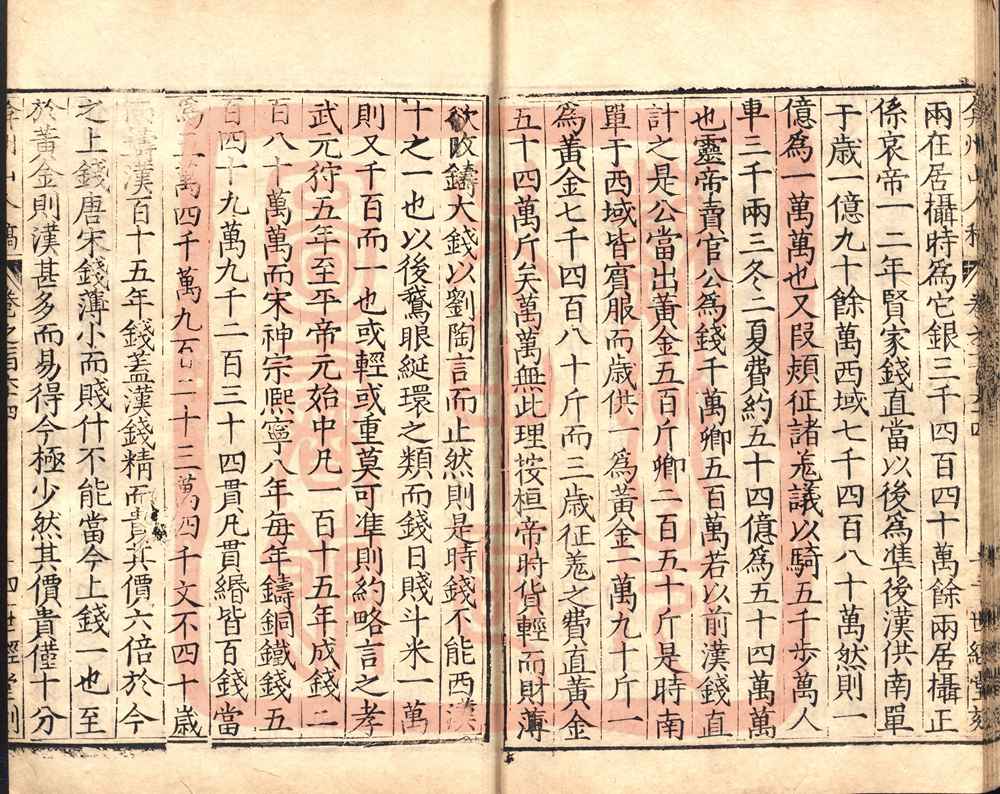 兩在居攝時爲它銀三千四百四十萬餘兩居攝正
係哀帝一二年賢家錢直當以後爲準後漢供南單
于歲一億九十餘萬西域七千四百八十萬然則一
億爲一萬萬也又段熲征諸羌議以騎五千步萬人
車三千兩三冬二夏費約五十四億爲五十四萬萬
也靈帝賣官公爲錢千萬卿五百萬若以前漢錢直
計之是公當出黃金五百斤卿二百五十斤是時南
單于西域皆賓服而歲供一爲黃金二萬九十斤一
爲黃金七千四百八十斤而三歲征羌之費直黃金
五十四萬斤矣萬萬無此理按桓帝時貨輕而財薄
欲改鑄大錢以劉陶言而止然則是時錢不能西漢
十之一也以後鵝眼綖環之類而錢日賤斗米一萬
則又千百而一也或輕或重莫可準則約略言之孝
武元狩五年至平帝元始中凡一百十五年成錢二
百八十萬萬而宋神宗熙寧八年每年鑄銅鐵錢五
百四十九萬九千二百三十四貫凡貫緡皆百錢當
爲五萬四千萬九百二十三萬四千文不四十歲
鑄漢百十五年錢蓋漢錢精而貴其價六倍於今
之上錢唐宋錢薄小而賤什不能當今上錢一也至
於黃金則漢甚多而易得今極少然其價貴僅十分
山人稿 卷之 四 世經堂刻